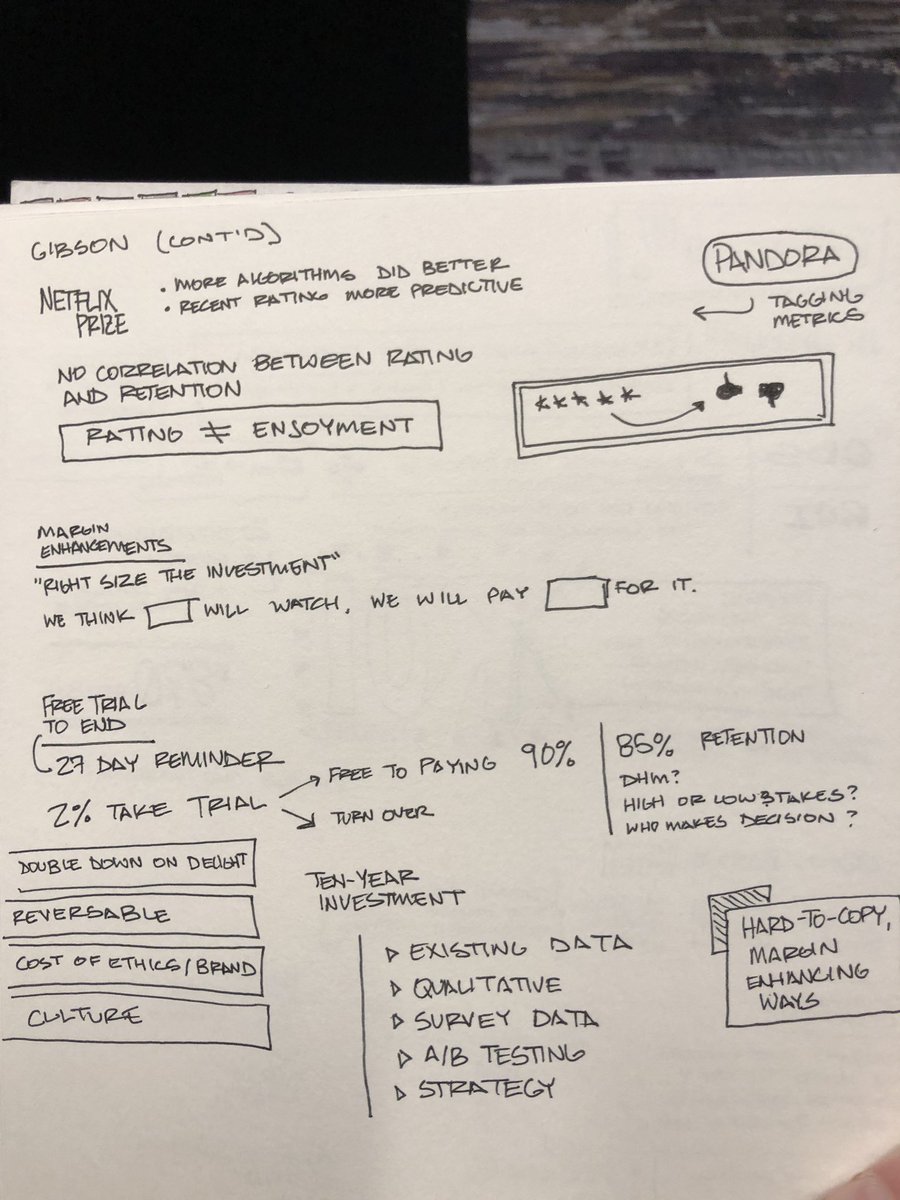 GIBSON (CONT'D)
NETFLIX
PRIZE
• MORE ALGORITHMS DID BETTER
• RECENT RATING MORE PREDICTIVE
PANDORA
TAGGING
METRICS
NO CORRELATION BETWEEN RATING
AND RETENTION
RATING ≠ ENJOYMENT
MARGIN
ENHANCEMENTS
"RIGHT SIZE THE INVESTMENT"
WE THINK WILL WATCH, WE WILL PAY FOR IT.
FREE TRIAL
TO END
27 DAY REMINDER
2% TAKE TRIAL
FREE TO PAYING 90%
TURN OVER
85% RETENTION
DHM?
HIGH OR LOW STAKES?
WHO MAKES DECISION?
DOUBLE DOWN ON DELIGHT
REVERSABLE
COST OF ETHICS/BRAND
CULTURE
TEN-YEAR
INVESTMENT
EXISTING DATA
QUALITATIVE
SURVEY DATA
A/B TESTING
STRATEGY
HARD-TO-COPY,
MARGIN
ENHANCING
WAYS